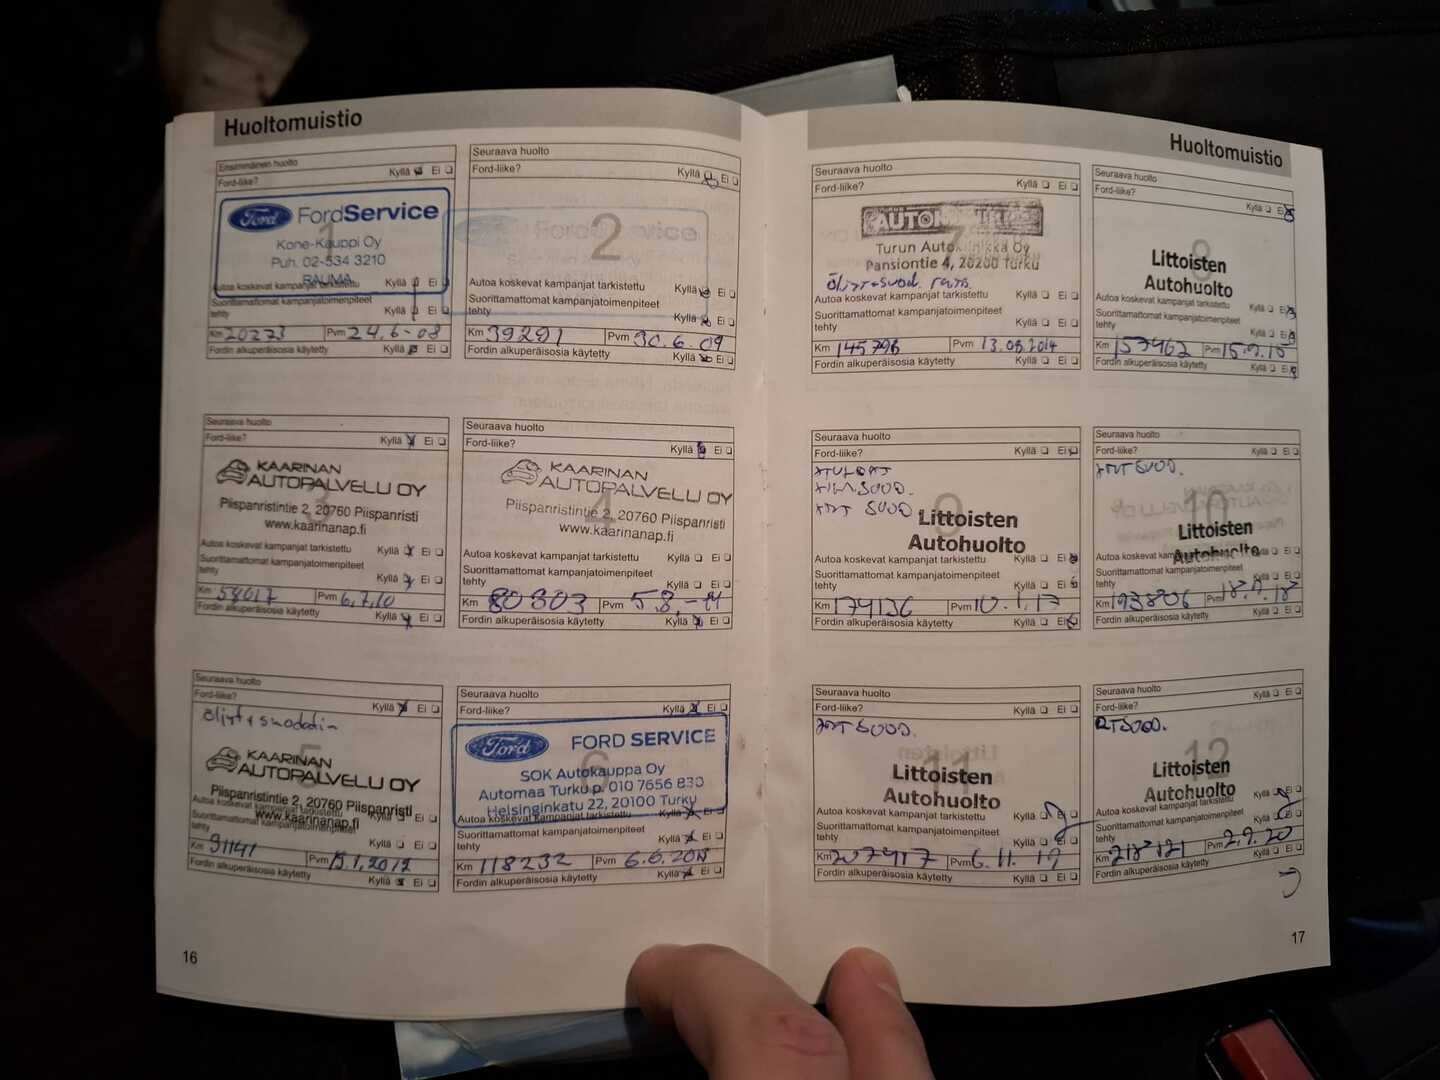 Huoltomuistio
Ensimmäinen huolto
Ford-liike? Kyllä Ei
Ford FordService
1
Kone-Kauppi Oy
Puh. 02-534 3210
RAUMA
Autoa koskevat kampanjat tarkistettu Kyllä Ei
Suorittamattomat kampanjatoimenpiteet
tehty Kyllä Ei
Km 20273 Pvm 24.6-08
Fordin alkuperäisosia käytetty Kyllä Ei
Seuraava huolto
Ford-liike? Kyllä Ei
2
Autoa koskevat kampanjat tarkistettu Kyllä Ei
Suorittamattomat kampanjatoimenpiteet
tehty Kyllä Ei
Km 39291 Pvm 30.6.09
Fordin alkuperäisosia käytetty Kyllä Ei
Seuraava huolto
Ford-liike? Kyllä Ei
3
KAARINAN
AUTOPALVELU OY
Piispanristintie 2, 20760 Piispanristi
www.kaarinanap.fi
Autoa koskevat kampanjat tarkistettu Kyllä Ei
Suorittamattomat kampanjatoimenpiteet
tehty Kyllä Ei
Km 58017 Pvm 6,7,10
Fordin alkuperäisosia käytetty Kyllä Ei
Seuraava huolto
Ford-liike? Kyllä Ei
4
KAARINAN
AUTOPALVELU OY
Piispanristintie 2, 20760 Piispanristi
www.kaarinanap.fi
Autoa koskevat kampanjat tarkistettu Kyllä Ei
Suorittamattomat kampanjatoimenpiteet
tehty Kyllä Ei
Km 80303 Pvm 5.8.-11
Fordin alkuperäisosia käytetty Kyllä Ei
Seuraava huolto
Ford-liike? Kyllä Ei
öljyt + suodatin
5
KAARINAN
AUTOPALVELU OY
Piispanristintie 2, 20760 Piispanristi
www.kaarinanap.fi
Autoa koskevat kampanjat tarkistettu Kyllä Ei
Suorittamattomat kampanjatoimenpiteet
tehty Kyllä Ei
Km 91141 Pvm 13.1.2012
Fordin alkuperäisosia käytetty Kyllä Ei
Seuraava huolto
Ford-liike? Kyllä Ei
Ford FORD SERVICE
6
SOK Autokauppa Oy
Automaa Turku p. 010 7656 830
Helsinginkatu 22, 20100 Turku
Autoa koskevat kampanjat tarkistettu Kyllä Ei
Suorittamattomat kampanjatoimenpiteet
tehty Kyllä Ei
Km 118232 Pvm
Fordin alkuperäisosia käytetty Kyllä Ei
16
Huoltomuistio
Seuraava huolto
Ford-liike? Kyllä Ei
7
Turun Autoklinikka Oy
Pansiontie 4, 20200 Turku
Autoa koskevat kampanjat tarkistettu Kyllä Ei
Suorittamattomat kampanjatoimenpiteet
tehty Kyllä Ei
Km 145796 Pvm 13.08.2014
Fordin alkuperäisosia käytetty Kyllä Ei
Seuraava huolto
Ford-liike? Kyllä Ei
8
Littoisten
Autohuolto
Autoa koskevat kampanjat tarkistettu Kyllä Ei
Suorittamattomat kampanjatoimenpiteet
tehty Kyllä Ei
Km 157462 Pvm
Fordin alkuperäisosia käytetty Kyllä Ei
Seuraava huolto
Ford-liike? Kyllä Ei
9
Littoisten
Autohuolto
Autoa koskevat kampanjat tarkistettu Kyllä Ei
Suorittamattomat kampanjatoimenpiteet
tehty Kyllä Ei
Km 174136 Pvm 10.1.17
Fordin alkuperäisosia käytetty Kyllä Ei
Seuraava huolto
Ford-liike? Kyllä Ei
10
Littoisten
Autohuolto
Autoa koskevat kampanjat tarkistettu Kyllä Ei
Suorittamattomat kampanjatoimenpiteet
tehty Kyllä Ei
Km 193806 Pvm
Fordin alkuperäisosia käytetty Kyllä Ei
Seuraava huolto
Ford-liike? Kyllä Ei
11
Littoisten
Autohuolto
Autoa koskevat kampanjat tarkistettu Kyllä Ei
Suorittamattomat kampanjatoimenpiteet
tehty Kyllä Ei
Km 207417 Pvm 6.11.19
Fordin alkuperäisosia käytetty Kyllä Ei
Seuraava huolto
Ford-liike? Kyllä Ei
12
Littoisten
Autohuolto
Autoa koskevat kampanjat tarkistettu Kyllä Ei
Suorittamattomat kampanjatoimenpiteet
tehty Kyllä Ei
Km 218121 Pvm 2.9.20
Fordin alkuperäisosia käytetty Kyllä Ei
17